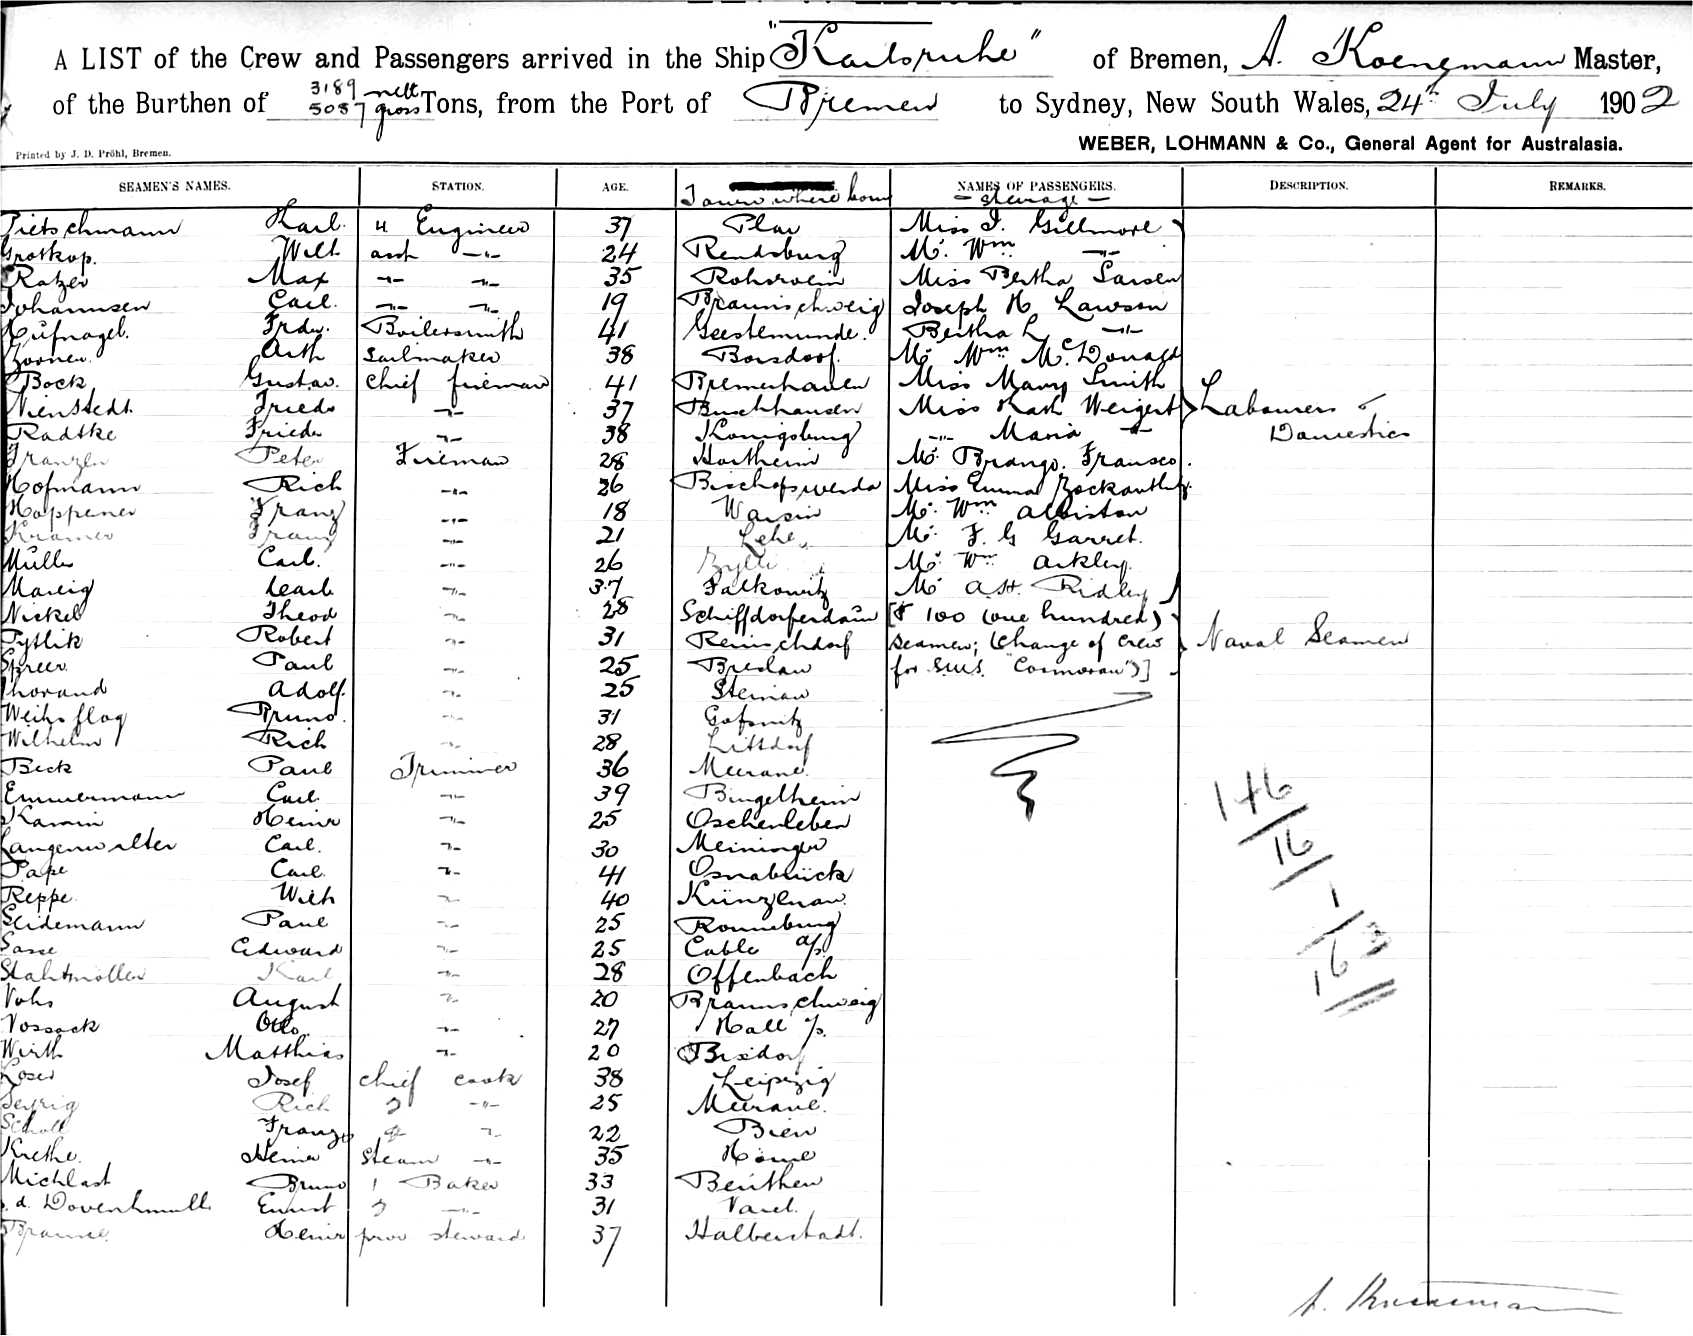 A LIST of the Crew and Passengers arrived in the Ship "Karlsruhe" of Bremen, A. Koenemann Master,
of the Burthen of 3189 nett 5087 gross Tons, from the Port of Bremen to Sydney, New South Wales, 24th July 1902
Printed by J. D. Pröhl, Bremen.
WEBER, LOHMANN & Co., General Agent for Australasia.
SEAMEN'S NAMES. STATION. AGE. Town where born NAMES OF PASSENGERS. DESCRIPTION. REMARKS.
- steerage -
Pietschmann Karl. 4 Engineer 37 Plau Miss I. Gillmore
Grotkop. Wilh asst -"- 24 Rendsburg Mr. Wm -"-
Ratzer Max -"- -"- 35 Miss Bertha Larsen
Johannsen Carl. -"- -"- 19 Braunschweig Joseph H Lawson
Hüfnagel. Frdr. Boilersmith 41 Geestemunde. Bertha L -"-
Arth Sailmaker 38 Borsdorf. Mr. Wm McDonald
Bock Gustav. Chief fireman 41 Bremerhaven Miss Mary Smith
Nienstedt. Friedr -"- 37 Buschhausen Miss Kath Weigert Labourers &
Radtke Friedr -"- 38 Konigsburg -"- Maria -"- Domestics
Franzen Peter Fireman 28 Hortheim Mr. Brango. Fransco.
Hofmann Rich -"- 26 Bischofswerda Miss Emma
Hoppener Franz -"- 18 Warsin Mr. Wm Albiston
Kramer Franz -"- 21 Lehe. Mr. F. G Garret.
Müller Carl. -"- 26 Mr. Wm Arkley.
Carl -"- 37 Falkowitz Mr A.H. Ridley
Nickel Theod -"- 28 Schiffdorferdam [& 100 (one hundred)
Pytlik Robert -"- 31 Reinschdorf seamen; (Change of crew Naval Seamen
Spreer Paul -"- 25 Breslau for S.M.S. "Cormoran")]
Thorand Adolf. -"- 25 Steinau
Weihsflog Bruno. -"- 31 Gofsnitz
Wilhelm Rich -"- 28 Littdorf
Beck Paul Trimmer 36 Meerane.
Emmermann Carl. -"- 39 Bingelheim
Kamin Heinr -"- 25 Oschersleben
Langenwalter Carl. -"- 30 Meiningen
Pape Carl. -"- 41 Osnabrück
Reppe. Wilh -"- 40 Künzlnau.
Seidemann Paul -"- 25 Ronneburg
Sasse Edward -"- 25 Calbe a/s.
Stahlmöller Karl -"- 28 Offenbach
Vohs August -"- 20 Braunschweig
Vossack Otto. -"- 27 Hall /s.
Wirth Matthias -"- 20 Bixdorf
Loser Josef chief cook 38 Leipzig
Rich 2 -"- 25 Meerane.
Scholl Franz -"- 22 Bien
Krethe. Heinr Steam -"- 35
Michlast Bruno 1 Baker 33 Beuthen
Ernst 2 -"- 31 Varel.
Braune. Heinr prov steward 37 Halberstadt.
146
16
1
163
A. Koenemann